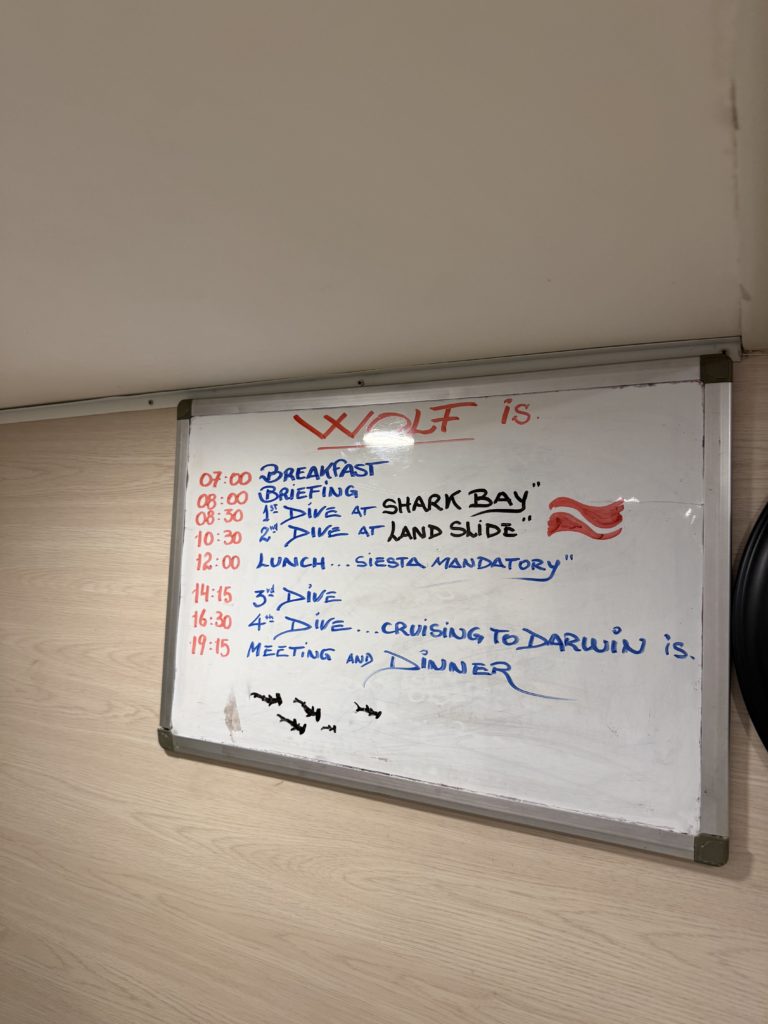 WOLF is.
07:00 BREAKFAST
08:00 BRIEFING
08:30 1st DIVE AT SHARK BAY"
10:30 2nd DIVE AT LAND SLIDE"
12:00 LUNCH... SIESTA MANDATORY"
14:15 3rd DIVE
16:30 4th DIVE... CRUISING TO DARWIN is.
19:15 MEETING AND DINNER